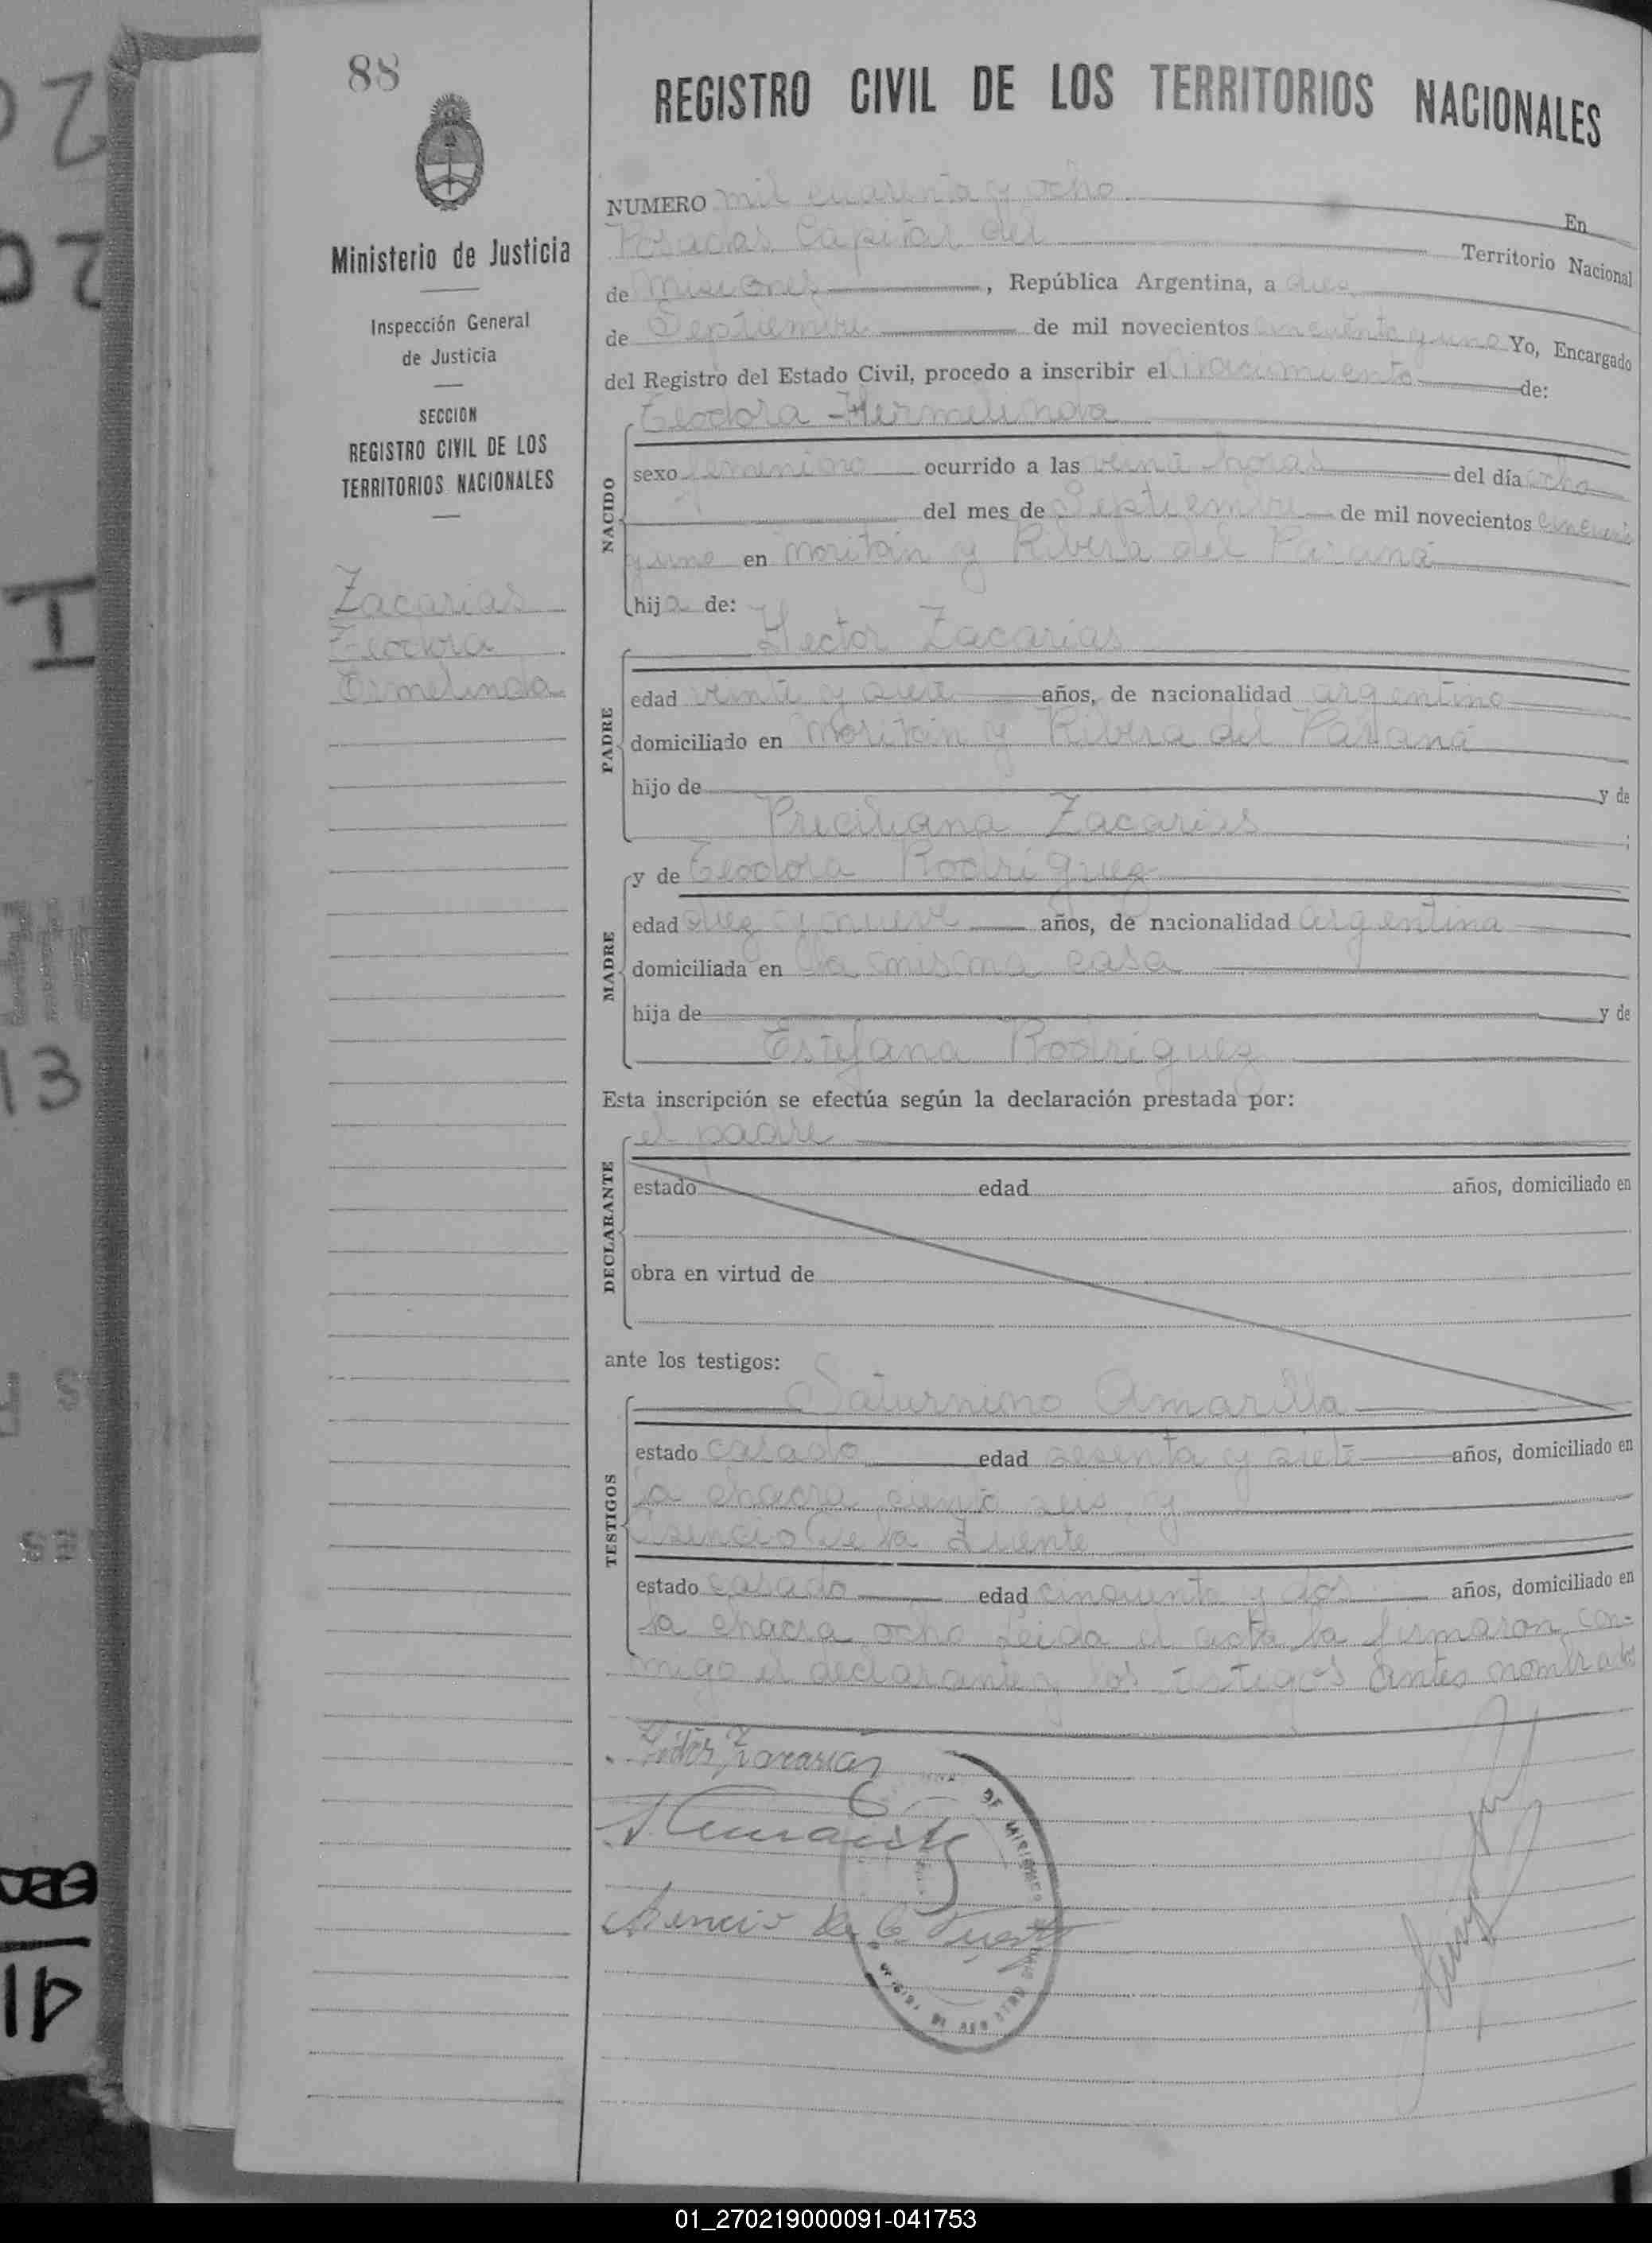 88
REGISTRO CIVIL DE LOS TERRITORIOS NACIONALES
Ministerio de Justicia
Inspección General
de Justicia
SECCION
REGISTRO CIVIL DE LOS
TERRITORIOS NACIONALES
Zacarias
Teodora
Ermelinda
NUMERO mil cuarenta y ocho En
Posadas Capital del Territorio Nacional
de Misiones, República Argentina, a diez
de Septiembre de mil novecientos cincuenta y uno Yo, Encargado
del Registro del Estado Civil, procedo a inscribir el Nacimiento de:
NACIDO
Teodora Hermelinda
sexo femenino ocurrido a las veinte horas del día ocho
del mes de Septiembre de mil novecientos cincuenta
y uno en Moritán y Ribera del Paraná
hija de:
PADRE
Hector Zacarias
edad veinte y siete años, de nacionalidad argentino
domiciliado en Moritán y Ribera del Paraná
hijo de y de
Preciliana Zacarias
MADRE
y de Teodora Rodriguez
edad diez y nueve años, de nacionalidad argentina
domiciliada en la misma casa
hija de y de
Estefana Rodriguez
Esta inscripción se efectúa según la declaración prestada por:
DECLARANTE
el padre
estado edad años, domiciliado en
obra en virtud de
ante los testigos:
TESTIGOS
Saturnino Amarilla
estado casado edad sesenta y siete años, domiciliado en
la chacra ciento seis y
Asencio De la Fuente
estado casado edad cincuenta y dos años, domiciliado en
la chacra ocho Leida el acta la firmaron con-
migo el declarante y los testigos antes nombrados
Hector Zacarias
Asencio De la Fuente
DE MISIONES
01_270219000091-041753